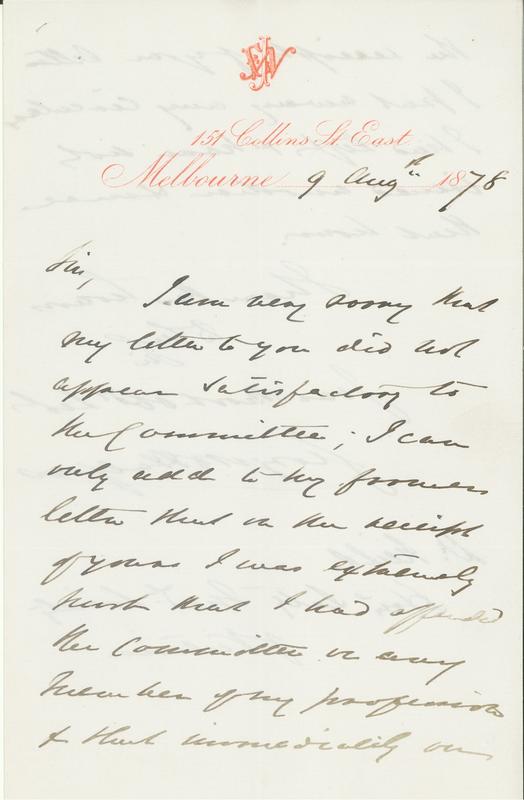 151 Collins St. East
Melbourne 9 Augth 1878
Sir,
I am very sorry that
my letter to you did not
appear satisfactory to
the Committee; I can
only add to my former
letter that on the receipt
of yours I was extremely
hurt that I had offended
the Committee or any
member of my profession
& that immediately on